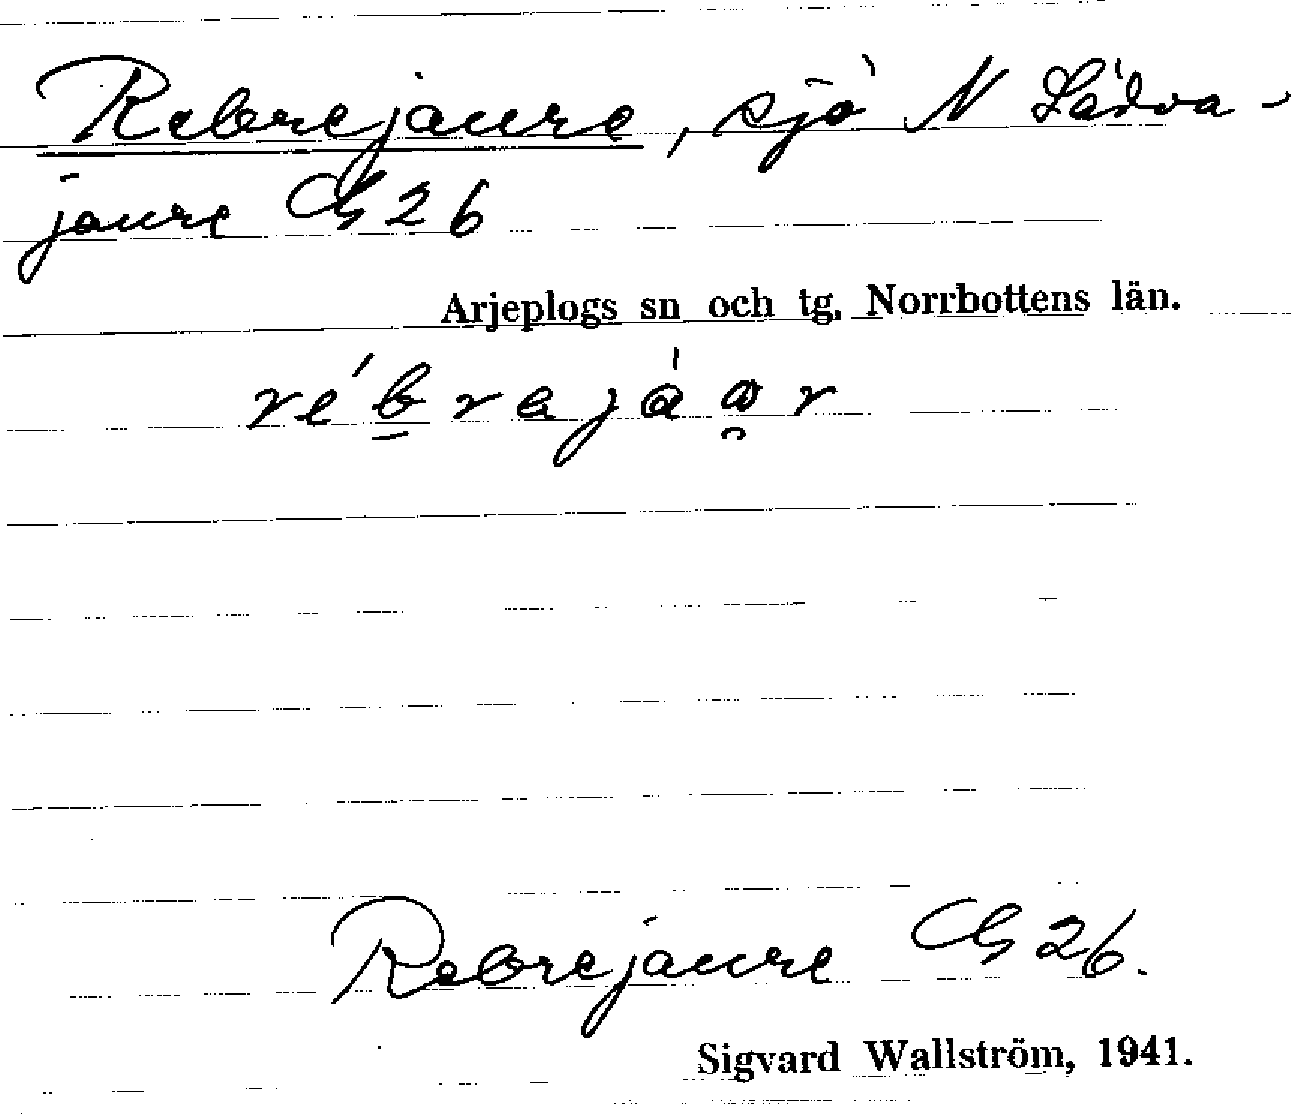 Rebrejaure, sjö N Lädva-
jaure G 26
Arjeplogs sn och tg. Norrbottens län.
Rebrejaure G 26.
Sigvard Wallström, 1941.